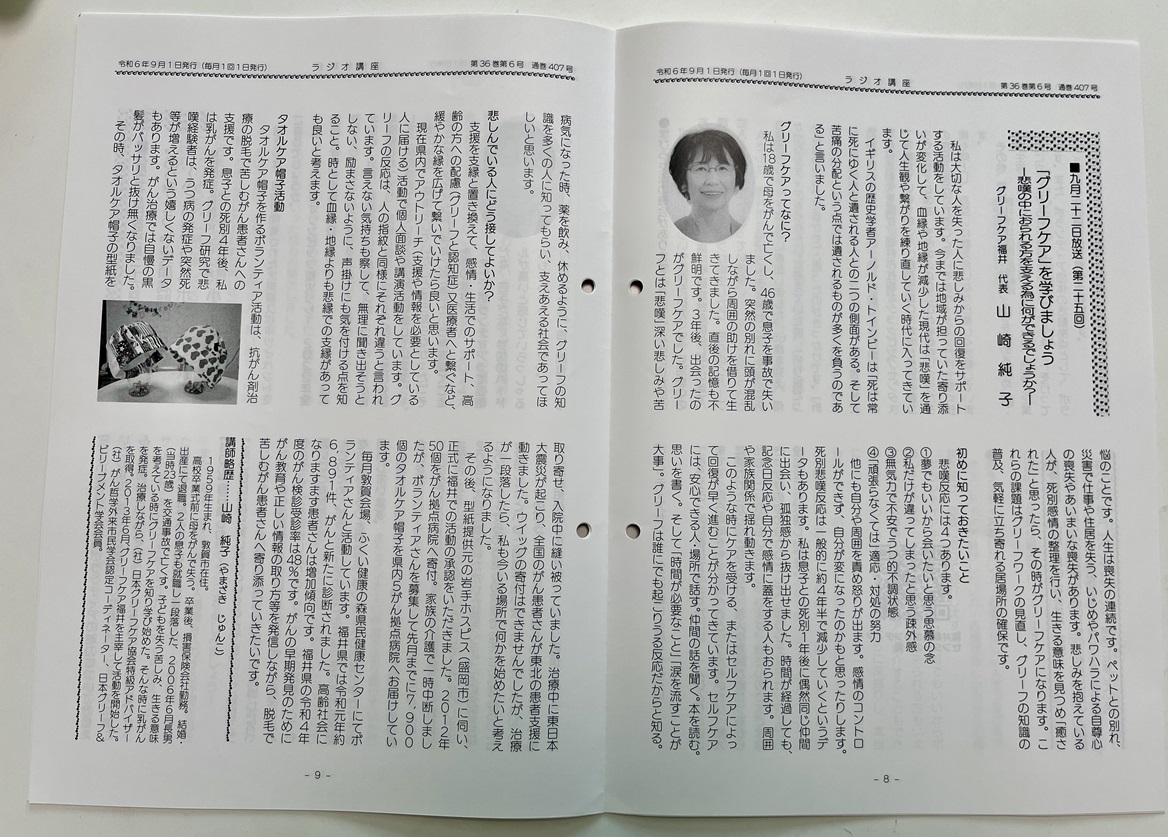 令和6年9月1日発行（毎月1回1日発行）
ラジオ講座
第36巻第6号 通巻407号
■九月二十二日放送（第二十五回）
「グリーフケア」を学びましょう
―悲嘆の中におられる方を支える為に何ができるでしょうか？―
グリーフケア福井 代表 山崎 純子
私は大切な人を失った人に悲しみからの回復をサポート
する活動をしています。今までは地域が担っていた寄り添
いが変化して、血縁や地縁が減少した現代は「悲嘆」を通
じて人生観や繋がりを練り直していく時代に入ってきてい
ます。
イギリスの歴史学者アーノルド・トインビーは「死は常
に死にゆく人と遺される人との二つの側面がある。そして
苦痛の分配という点では遺されるものが多くを負うのであ
る」と言いました。
グリーフケアってなに？
私は18歳で母をがんで亡くし、46歳で息子を事故で失い
ました。突然の別れに頭が混乱
しながら周囲の助けを借りて生
きてきました。直後の記憶も不
鮮明です。3年後、出会ったの
がグリーフケアでした。グリー
フとは「悲嘆」深い悲しみや苦
悩のことです。人生は喪失の連続です。ペットとの別れ、
災害で仕事や住居を失う、いじめやパワハラによる自尊心
の喪失やあいまいな喪失があります。悲しみを抱えている
人が、死別感情の整理を行い、生きる意味を見つめ「癒さ
れた」と思ったら、その時がグリーフケアになります。こ
れらの課題はグリーフワークの見直し、グリーフの知識の
普及、気軽に立ち寄れる居場所の確保です。
初めに知っておきたいこと
悲嘆反応には4つあります。
①夢でもいいから会いたいと思う思慕の念
②私だけが違ってしまったと思う疎外感
③無気力で不安でうつ的不調状態
④「頑張らなくては」適応・対処の努力
他にも自分や周囲を責め怒りが出ます。感情のコントロ
ールができず、自分が変になったのかもと思ったりします。
死別悲嘆反応は一般的に約4年半で減少していくというデ
ータもあります。私は息子との死別1年後に偶然同じ仲間
に出会い、孤独感から抜け出せました。時間が経過しても、
記念日反応や自分で感情に蓋をする人もおられます。周囲
や家族関係で揺れ動きます。
このような時にケアを受ける、またはセルフケアによっ
て回復が早く進むことが分かってきています。セルフケア
には、安心できる人・場所で話す。仲間の話を聞く。本を読む。
思いを書く。そして「時間が必要なこと」「涙を流すことが
大事」。グリーフは誰にでも起こりうる反応だからと知る。
- 8 -
令和6年9月1日発行（毎月1回1日発行）
ラジオ講座
第36巻第6号 通巻407号
病気になった時、薬を飲み、休めるように、グリーフの知
識を多くの人に知ってもらい、支えあえる社会であってほ
しいと思います。
悲しんでいる人にどう接してよいか？
支援を支縁と置き換えて、感情・生活でのサポート、高
齢の方への配慮（グリーフと認知症）又医療者へと繋ぐなど、
緩やかな縁を広げて繋いでいけたら良いと思います。
現在県内でアウトリーチ（支援や情報を必要としている
人に届ける）活動で個人面談や講演活動をしています。グ
リーフの反応は、人の指紋と同様にそれぞれ違うと言われ
ています。言えない気持ちも察して、無理に聞き出そうと
しない、励まさないように、声掛けにも気を付ける点を知
ること。時として血縁・地縁よりも悲縁での支縁があって
も良いと考えます。
タオルケア帽子活動
タオルケア帽子を作るボランティア活動は、抗がん剤治
療の脱毛で苦しむがん患者さんへの
支援です。息子との死別4年後、私
は乳がんを発症。グリーフ研究で悲
嘆経験者は、うつ病の発症や突然死
等が増えるという嬉しくないデータ
もあります。がん治療では自慢の黒
髪がバッサリと抜け無くなりました。
その時、タオルケア帽子の型紙を
取り寄せ、入院中に縫い被っていました。治療中に東日本
大震災が起こり、全国のがん患者さんが東北の患者支援に
動きました。ウイッグの寄付はできませんでしたが、治療
が一段落したら、私も今いる場所で何かを始めたいと考え
るようになりました。
その後、型紙提供元の岩手ホスピス（盛岡市）に伺い、
正式に福井での活動の承認をいただきました。2012年
50個をがん拠点病院へ寄付。家族の介護で一時中断しまし
たが、ボランティアさんを募集して先月までに7,900
個のタオルケア帽子を県内がん拠点病院へお届けしてい
ます。
毎月敦賀会場、ふくい健康の森県民健康センターにてボ
ランティアさんと活動しています。福井県では令和元年約
6,891件、がんと新たに診断されました。高齢社会に
なりますます患者さんは増加傾向です。福井県の令和4年
度のがん検診受診率は48％です。がんの早期発見のために
がん教育や正しい情報の取り方等を発信しながら、脱毛で
苦しむがん患者さんへ寄り添っていきたいです。
講師略歴……山崎 純子（やまさき じゅんこ）
1959年生まれ、敦賀市在住。
高校卒業式前に母をがんで失う。卒業後、損害保険会社勤務。結婚・
出産にて退職。2人の息子も就職し一段落した、2006年6月長男
（当時23歳）を交通事故で亡くす。子どもを失う苦しみ、生きる意味
を考えている時にグリーフケアを知り学び始めた。そんな時に乳がん
を発症。治療しながら、（社）日本グリーフケア協会特級アドバイザー
を取得。2013年6月、グリーフケア福井を主宰して活動を開始した。
（社）がん哲学外来市民学会認定コーディネーター、日本グリーフ＆
ビリーブメント学会会員。
- 9 -